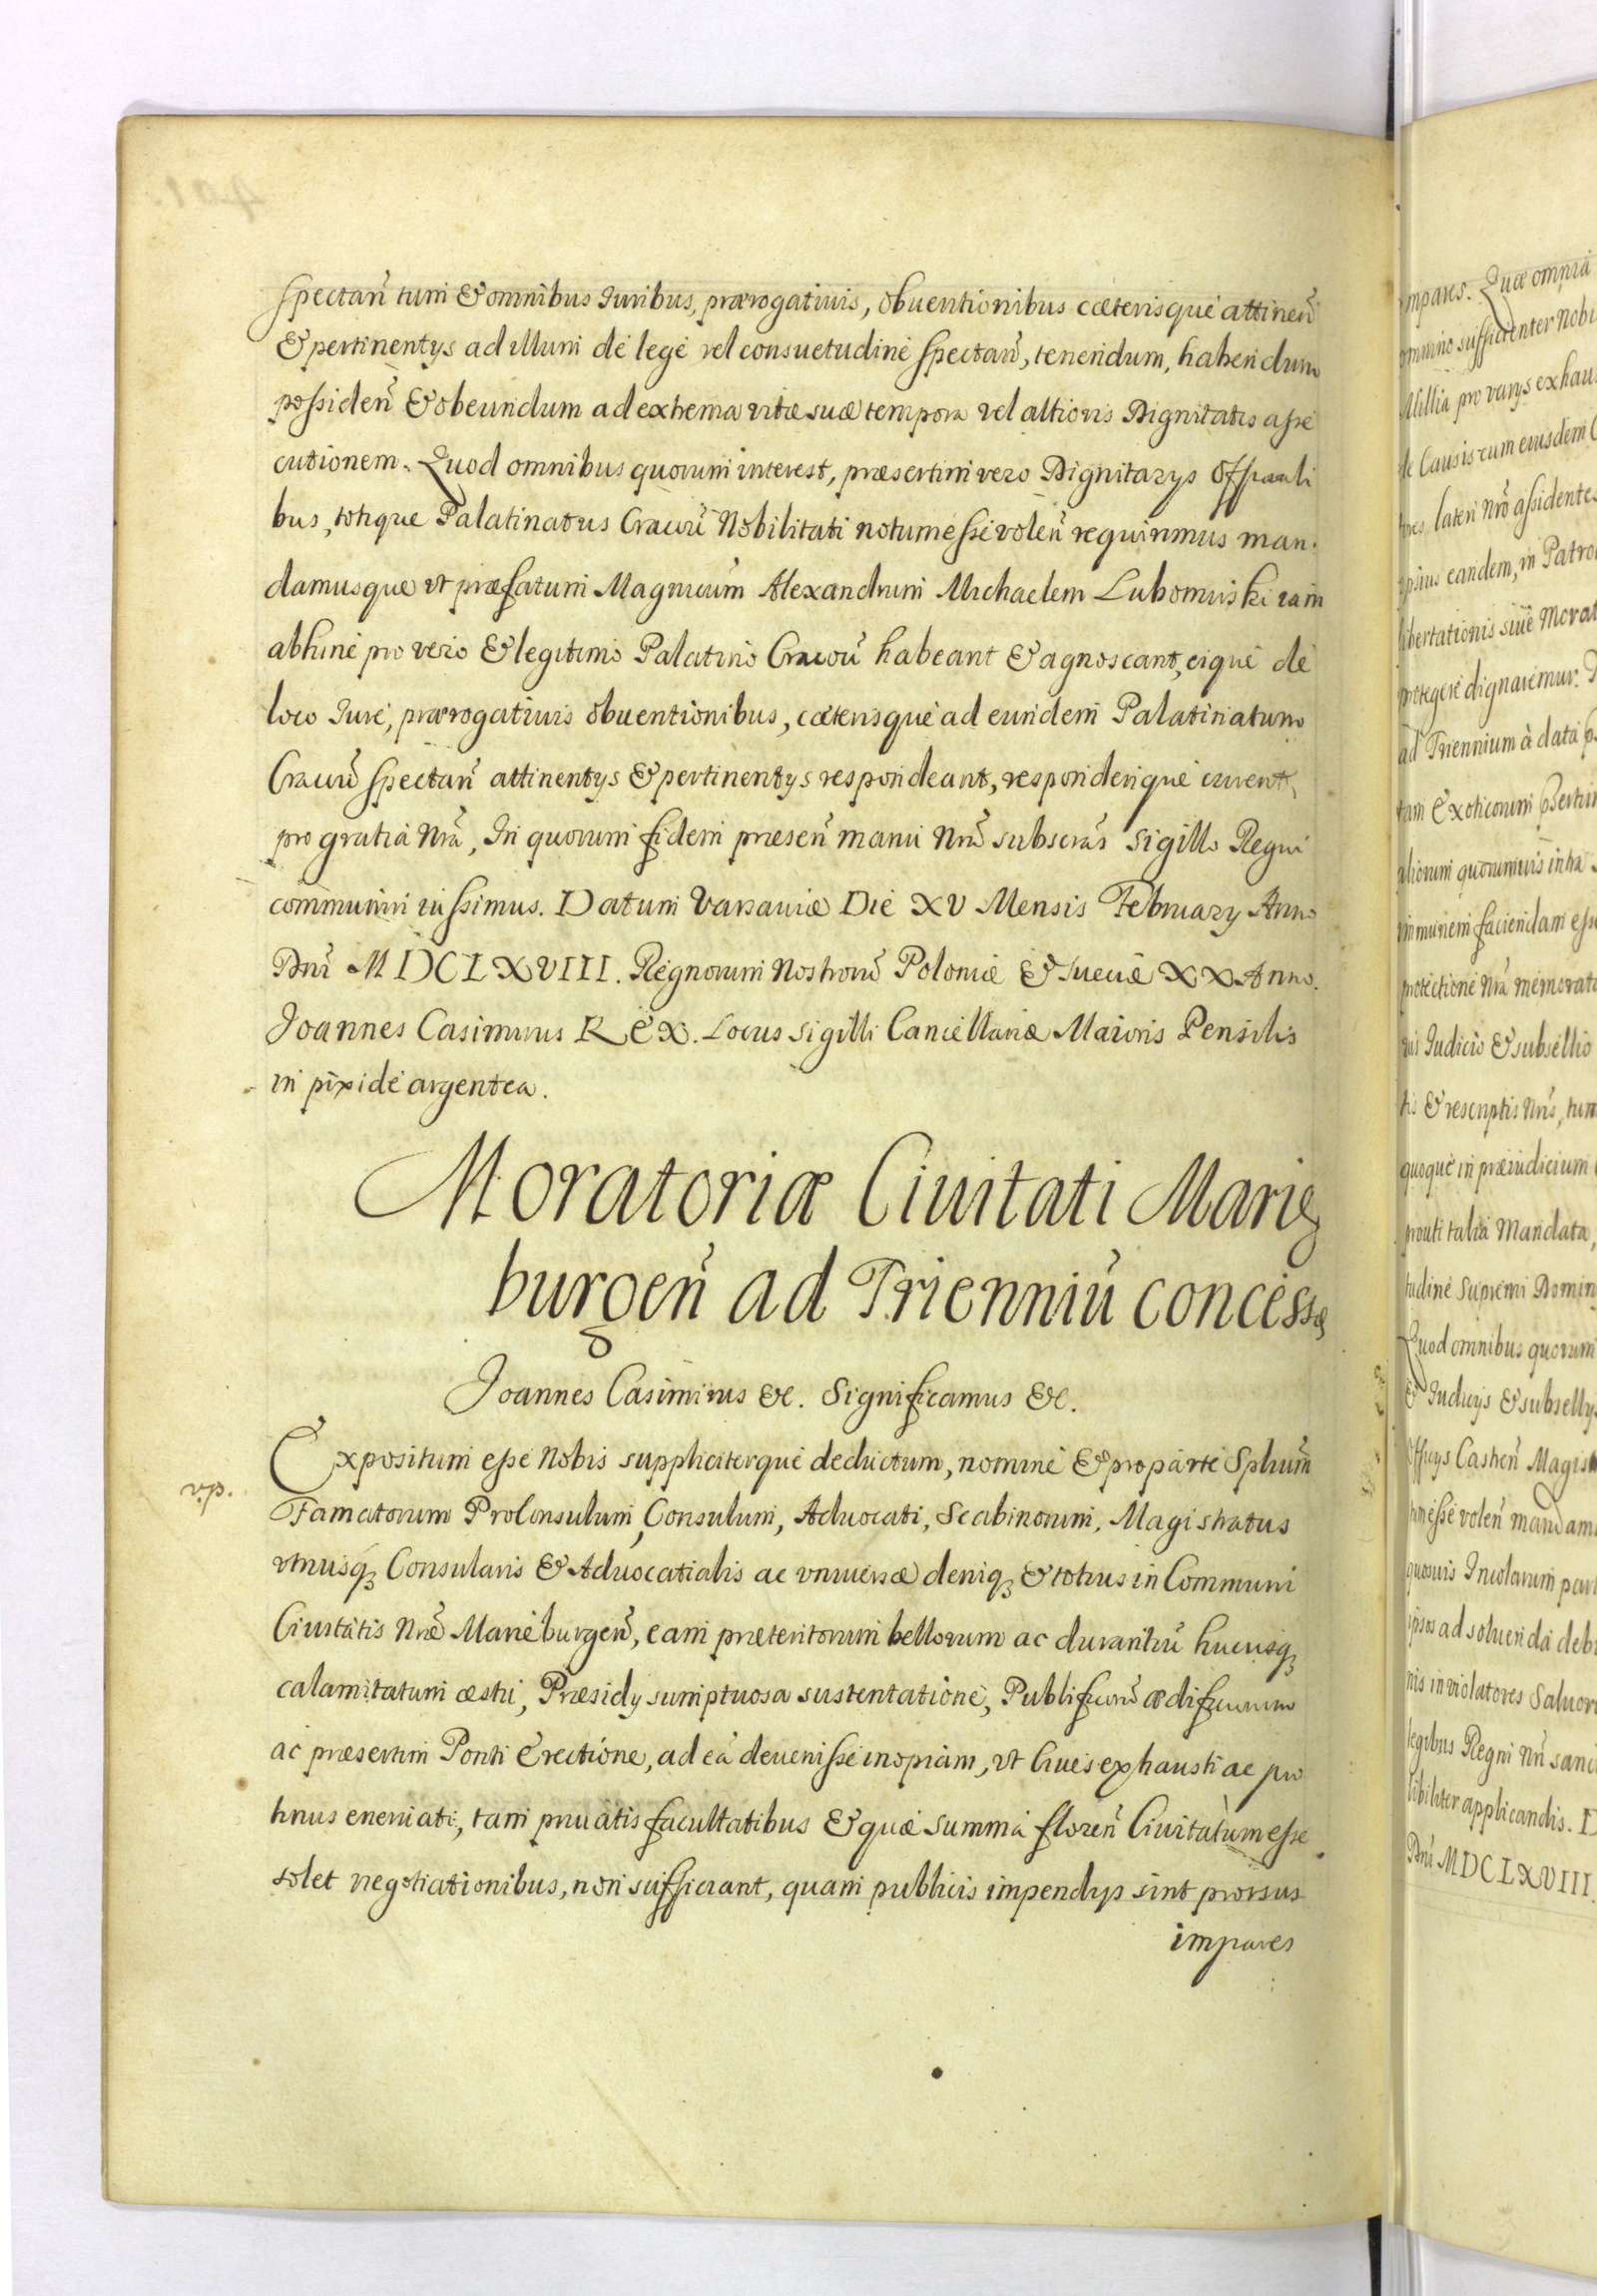 spectañ tum & omnibus Iuribus, prærogatiuis, obuentionibus cæterisque attineñ
& pertinentys ad illum de lege vel consuetudine spectañ, tenendum, habendum
possideñ & obeundum ad extrema vitæ suæ tempora vel altioris Dignitatis asse
cutionem. Quod omnibus quorum interest, præsertim vero Dignitarys Officiali
bus, totique Palatinatus Cracoũ Nobilitati notum esse voleñ requirimus man-
damusque vt præfatum Magnicum̃ Alexandrum Michaelem Lubomirski iam
abhinc pro vero & legitimo Palatino Cracoũ habeant & agnoscant, eique de
loco Iure, prærogatiuis obuentionibus, cæterisque ad eundem Palatinatum
Cracoũ spectañ attinentys & pertinentys respondeant, responderique curent,
pro gratia Nrã, In quorum fidem præseñ manu Nrã subscrãs Sigillo Regni
communiri iussimus. Datum Varsauiæ Die XV Mensis February Anno
Dnĩ MDCLXVIII. Regnorum Nostroũ Poloniæ & Sueciæ XX Anno.
Joannes Casimirus REX. Locus Sigilli Cancellariæ Maioris Pensilis
in pixide argentea.
Moratoriæ Ciuitati Marie
burgeñ ad Trienniũ concessæ
Joannes Casimirus &c. Significamus &c.
Expositum esse Nobis suppliciterque deductum, nomine & pro parte Splium̃
Famatorum Proconsulum, Consulum, Aduocati, Scabinorum, Magistratus
vtriusq3 Consularis & Aduocatialis ac vniuersæ deniq3 & totius in Communi
Ciuitatis Nræ̃ Marieburgeñ, eam præteritorum bellorum ac durantiũ hucusq3
calamitatum æstu, Præsidy sumptuosa sustentatione, Publicoruũ ædificiorum
ac præsertim Ponti Erectione, ad eã deuenisse inopiam, vt Ciues exhausti ac pro
tinus eneruati, tam priuatis facultatibus & quæ summa floreñ Ciuitatum esse
solet negotiationibus, non sufficiant, quam publicis impendys sint prorsus
impares
mpares. Quæ omnia
omnino sufficienter Nobi
Millia pro varys exhau
de Causis cum eiusdem C
lateri Nrõ assidentes
ipsius eandem, in Patro
libertationis siue Morat
protegere dignaremur.
ad Triennium à data
tam Exoticorum
aliorum quorumuis intra
immunem faciendam esse
protectione Nrã memorat
Iudicio & subsellio
tis & rescriptis Nrĩs, tum
quoque in præiudicium
prouti talia Mandata,
tudine Supremi Domin
Quod omnibus quorum
Iudicys & subsellys
Officys Castreñ Magis
esse voleñ mandam
quouis Incolarum
ipsos ad soluenda debi
nis in violatores Saluor
legibus Regni Nrĩ sanci
libiliter applicandis. D
Dnĩ MDCLXVIII.